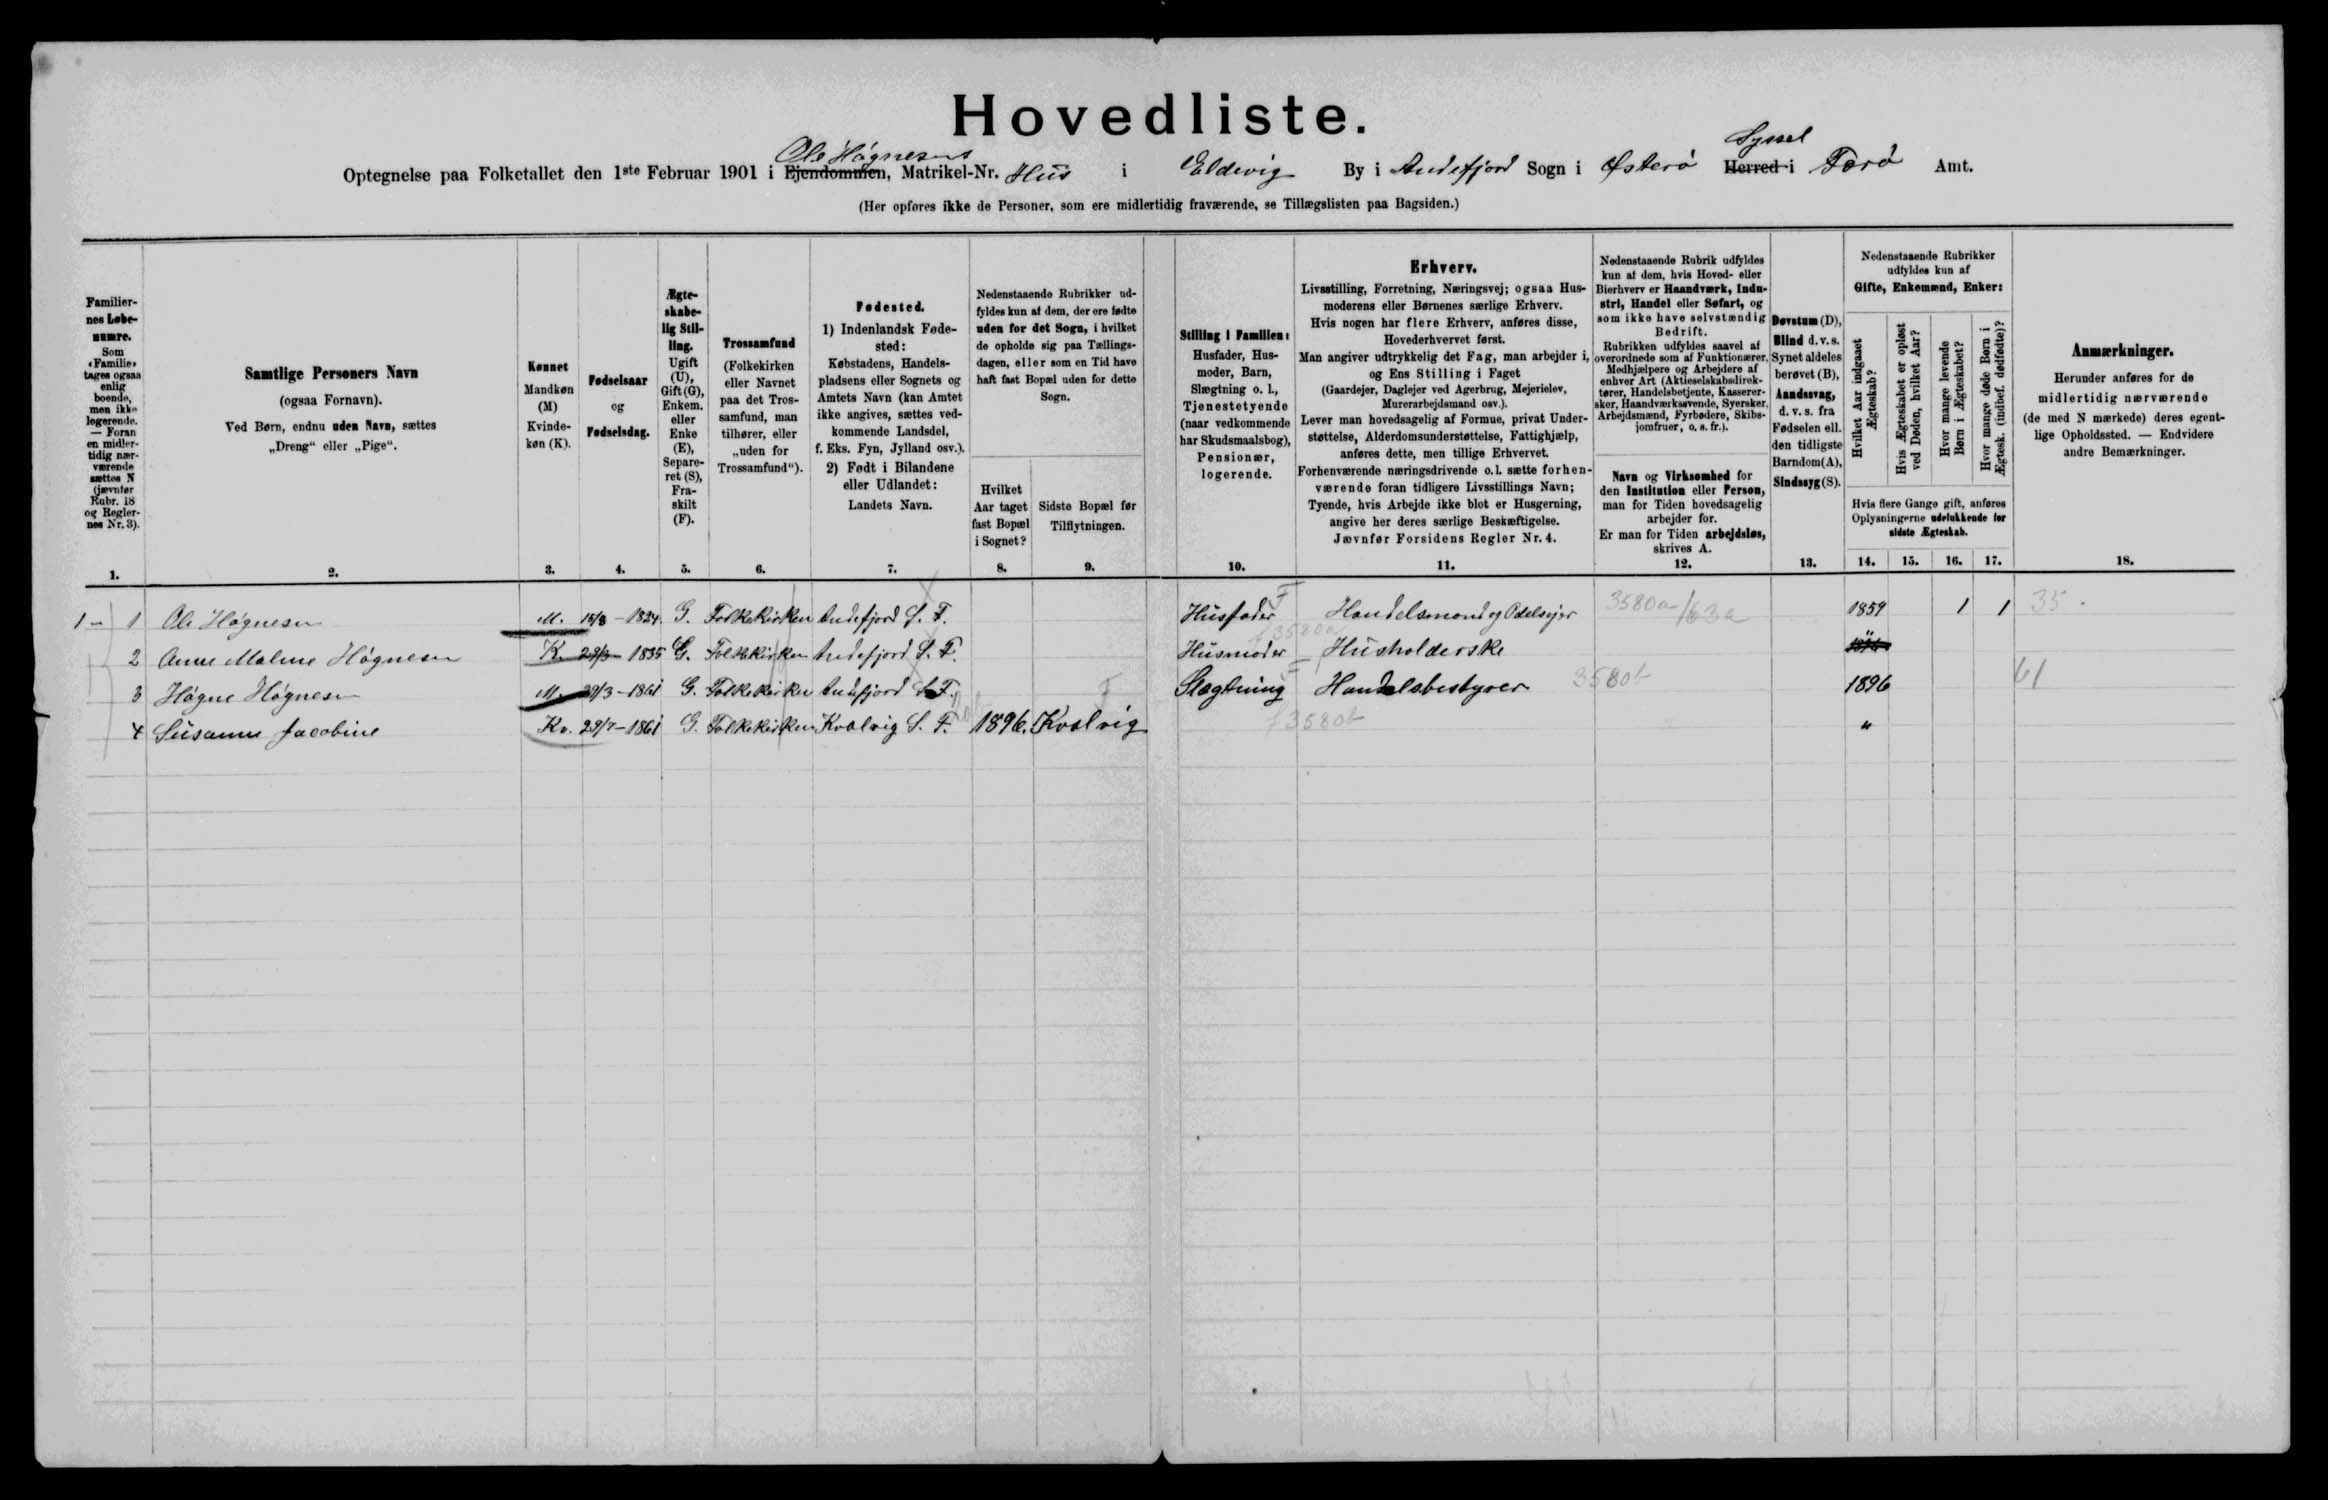 Hovedliste.
Ole Høgnesens
Syssel
Optegnelse paa Folketallet den 1ste Februar 1901 i Ejendommen, Matrikel-Nr. Hus i Eldevig By i Andefjord Sogn i Østerø Herred i Færø Amt.
(Her opføres ikke de Personer, som ere midlertidig fraværende, se Tillægslisten paa Bagsiden.)
Familier-
nes Løbe-
numre.
Som
«Familie»
tages ogsaa
enlig
boende,
men ikke
logerende.
— Foran
en midler-
tidig nær-
værende
sættes N
(jævnfør
Rubr. 18
og Regler-
nes Nr. 3).
1.
Samtlige Personers Navn
(ogsaa Fornavn).
Ved Børn, endnu uden Navn, sættes
„Dreng“ eller „Pige“.
2.
Kønnet
Mandkøn
(M)
Kvinde-
køn (K).
3.
Fødselsaar
og
Fødselsdag.
4.
Ægte-
skabe-
lig Stil-
ling.
Ugift
(U),
Gift (G),
Enkem.
eller
Enke
(E),
Separe-
ret (S),
Fra-
skilt
(F).
5.
Trossamfund
(Folkekirken
eller Navnet
paa det Tros-
samfund, man
tilhører, eller
„uden for
Trossamfund“).
6.
Fødested.
1) Indenlandsk Føde-
sted:
Købstadens, Handels-
pladsens eller Sognets og
Amtets Navn (kan Amtet
ikke angives, sættes ved-
kommende Landsdel,
f. Eks. Fyn, Jylland osv.).
2) Født i Bilandene
eller Udlandet:
Landets Navn.
7.
Nedenstaaende Rubrikker ud-
fyldes kun af dem, der ere fødte
uden for det Sogn, i hvilket
de opholde sig paa Tællings-
dagen, eller som en Tid have
haft fast Bopæl uden for dette
Sogn.
Hvilket
Aar taget
fast Bopæl
i Sognet?
8.
Sidste Bopæl før
Tilflytningen.
9.
Stilling i Familien:
Husfader, Hus-
moder, Barn,
Slægtning o. l.,
Tjenestetyende
(naar vedkommende
har Skudsmaalsbog),
Pensionær,
logerende.
10.
Erhverv.
Livsstilling, Forretning, Næringsvej; ogsaa Hus-
moderens eller Børnenes særlige Erhverv.
Hvis nogen har flere Erhverv, anføres disse,
Hovederhvervet først.
Man angiver udtrykkelig det Fag, man arbejder i,
og Ens Stilling i Faget
(Gaardejer, Daglejer ved Agerbrug, Mejerielev,
Murerarbejdsmand osv.).
Lever man hovedsagelig af Formue, privat Under-
støttelse, Alderdomsunderstøttelse, Fattighjælp,
anføres dette, men tillige Erhvervet.
Forhenværende næringsdrivende o. l. sætte forhen-
værende foran tidligere Livsstillings Navn;
Tyende, hvis Arbejde ikke blot er Husgerning,
angive her deres særlige Beskæftigelse.
Jævnfør Forsidens Regler Nr. 4.
11.
Nedenstaaende Rubrik udfyldes
kun af dem, hvis Hoved- eller
Bierhverv er Haandværk, Indu-
stri, Handel eller Søfart, og
som ikke have selvstændig
Bedrift.
Rubrikken udfyldes saavel af
overordnede som af Funktionærer,
Medhjælpere og Arbejdere af
enhver Art (Aktieselskabsdirek-
tører, Handelsbetjente, Kasserer-
sker, Haandværkssvende, Syersker,
Arbejdsmænd, Fyrbødere, Skibs-
jomfruer, o. s. fr.).
Navn og Virksomhed for
den Institution eller Person,
man for Tiden hovedsagelig
arbejder for.
Er man for Tiden arbejdsløs,
skrives A.
12.
Døvstum (D),
Blind d. v. s.
Synet aldeles
berøvet (B),
Aandssvag,
d. v. s. fra
Fødselen ell.
den tidligste
Barndom (A),
Sindssyg (S).
13.
Nedenstaaende Rubrikker
udfyldes kun af
Gifte, Enkemænd, Enker:
Hvilket Aar indgaaet
Ægteskab?
Hvis Ægteskabet er opløst
ved Døden, hvilket Aar?
Hvor mange levende
Børn i Ægteskabet?
Hvor mange døde Børn i
Ægtesk. (indbef. dødfødte)?
Hvis flere Gange gift, anføres
Oplysningerne udelukkende for
sidste Ægteskab.
14. 15. 16. 17.
Anmærkninger.
Herunder anføres for de
midlertidig nærværende
(de med N mærkede) deres egent-
lige Opholdssted. — Endvidere
andre Bemærkninger.
18.
1 - 1 Ole Høgnesen M. 15/8 - 1824. G. Folkekirken Andefjord S. F. Husfader Handelsmand og Odelsejer 3580a/63a 1859 1 1 35
2 Anne Malene Høgnesen K. 29/3 1835 G. Folkekirken Andefjord S. F. Husmoder Husholderske "
3 Høgne Høgnesen M. 29/3 - 1861 G. Folkekirken Andefjord S. F. Slægtning Handelsbestyrer 3580b 1896 61
4 Susanne Jacobine Kv. 29/7 - 1861 G. Folkekirken Kvalvig S. F. 1896. Kvalvig f 3580b "